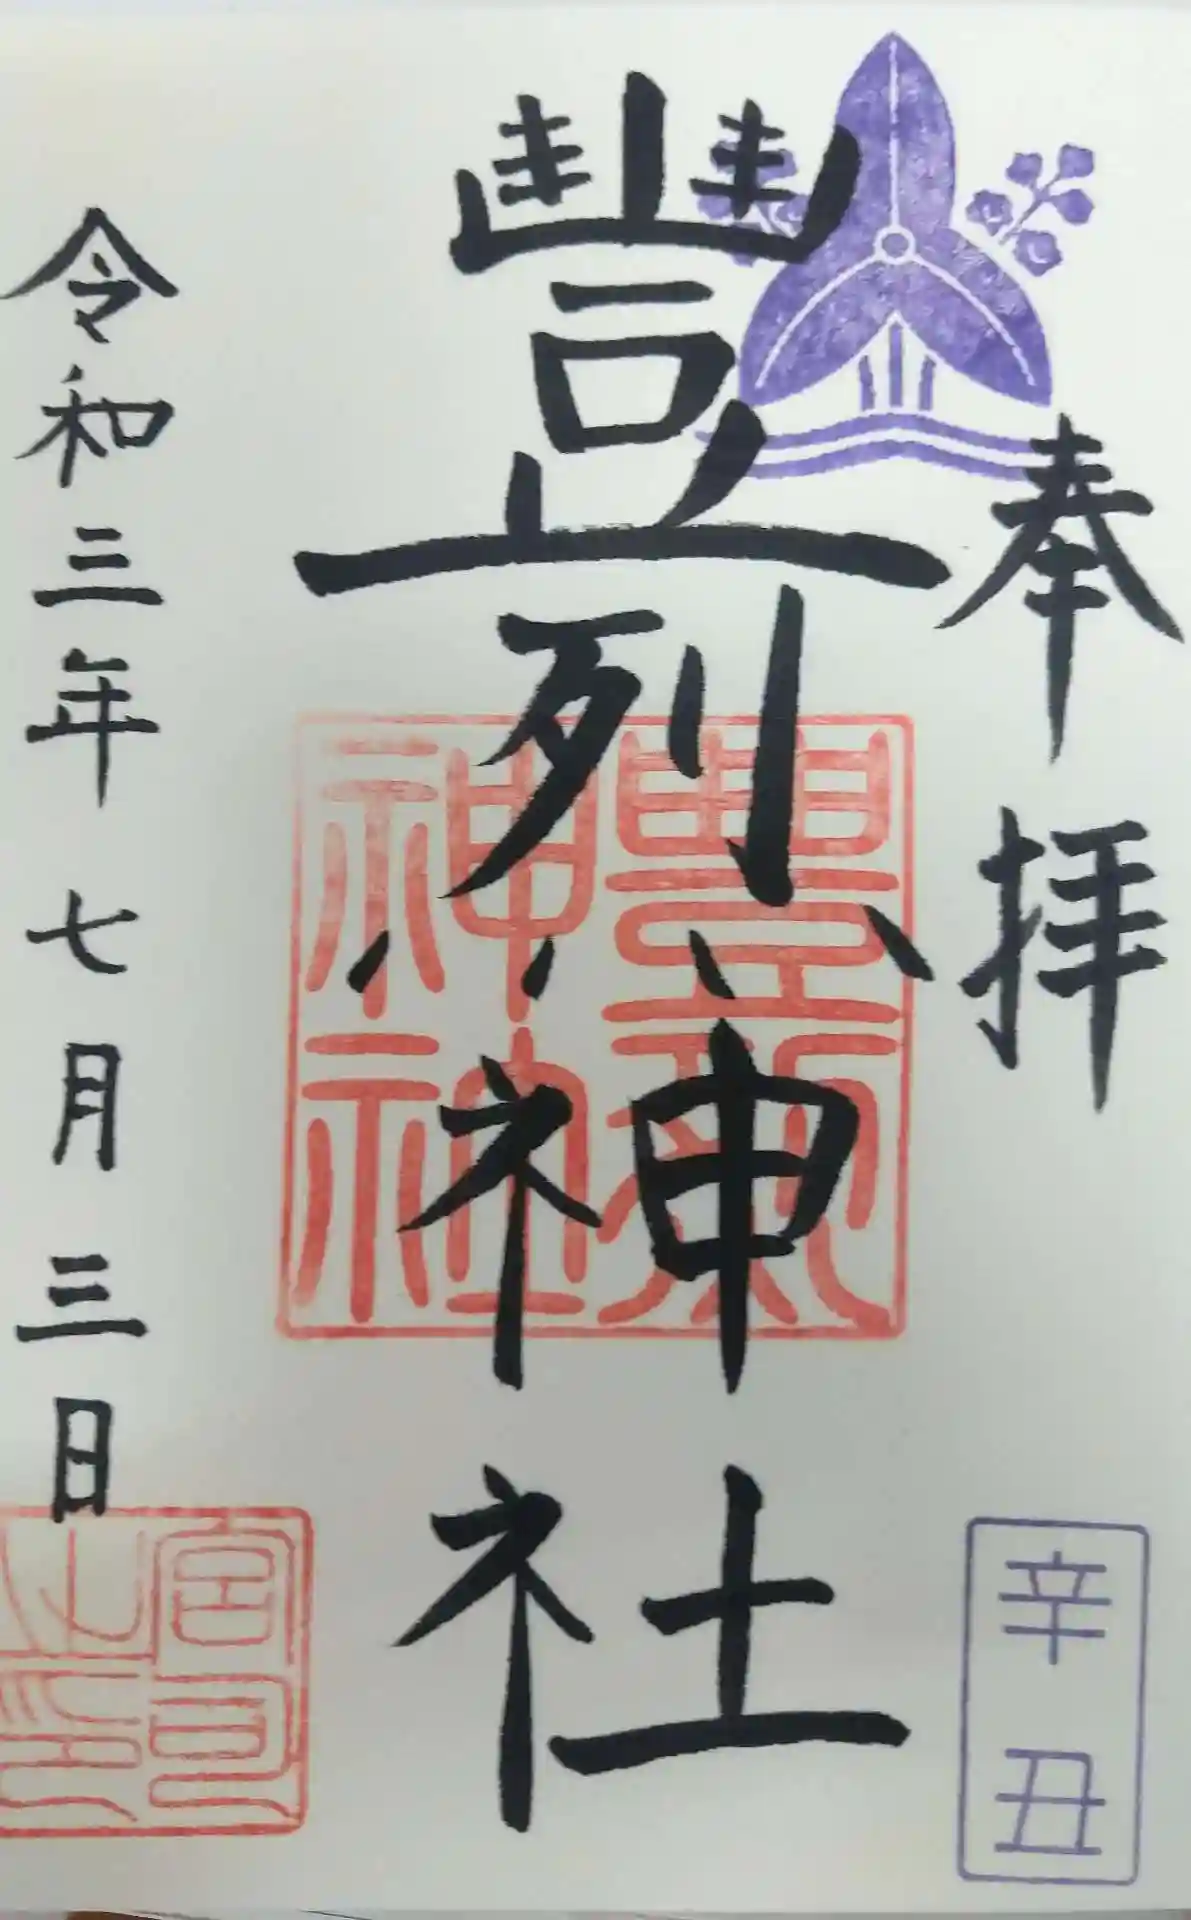 奉拝
辛丑
豐烈神社
豐烈神社
令和三年七月三日
宮司之印